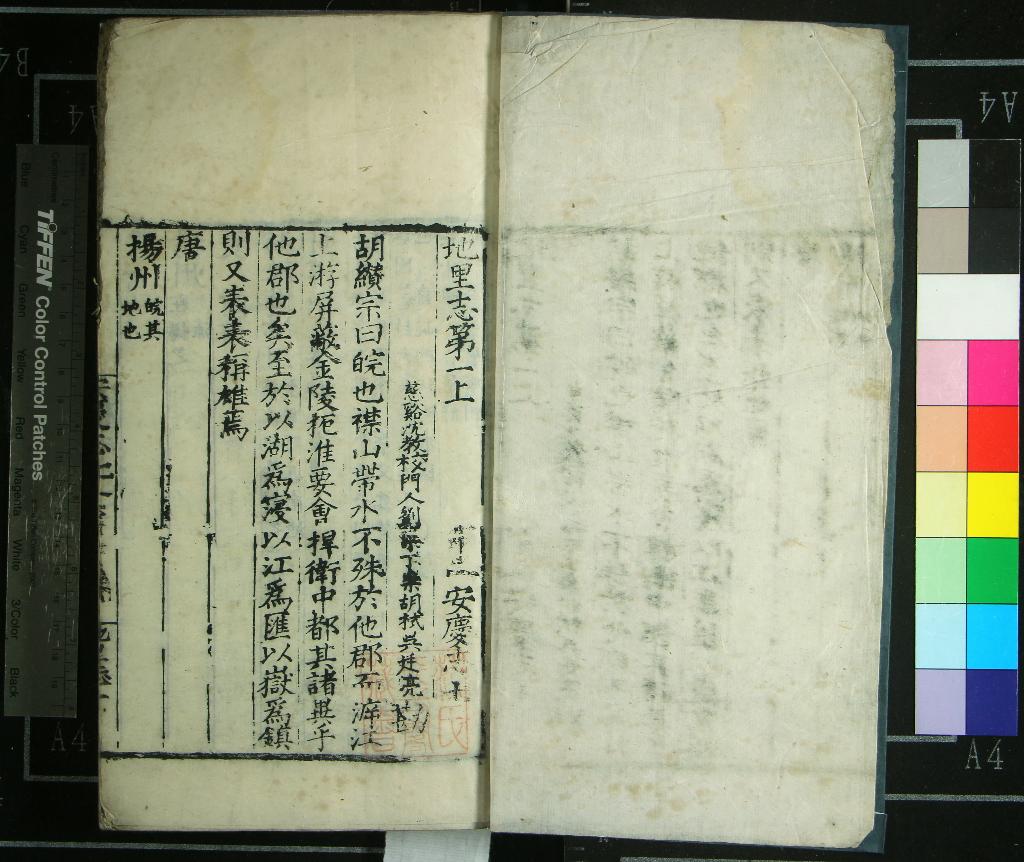 地里志第一上 安慶
慈谿沈教校門人 胡栻吳廷亮
胡纘宗曰皖也襟山帶水不殊於他郡而 江
上游屏蔽金陵扼淮要會捍衛中都其諸異乎
他郡也矣至於以湖爲寖以江爲匯以嶽爲鎮
則又表表稱雄焉
唐
揚州 皖其地也
TIFFEN Color Control Patches
Blue Cyan Green Yellow Red Magenta White 3/Color Black
A4
A4
A4
A4
B4